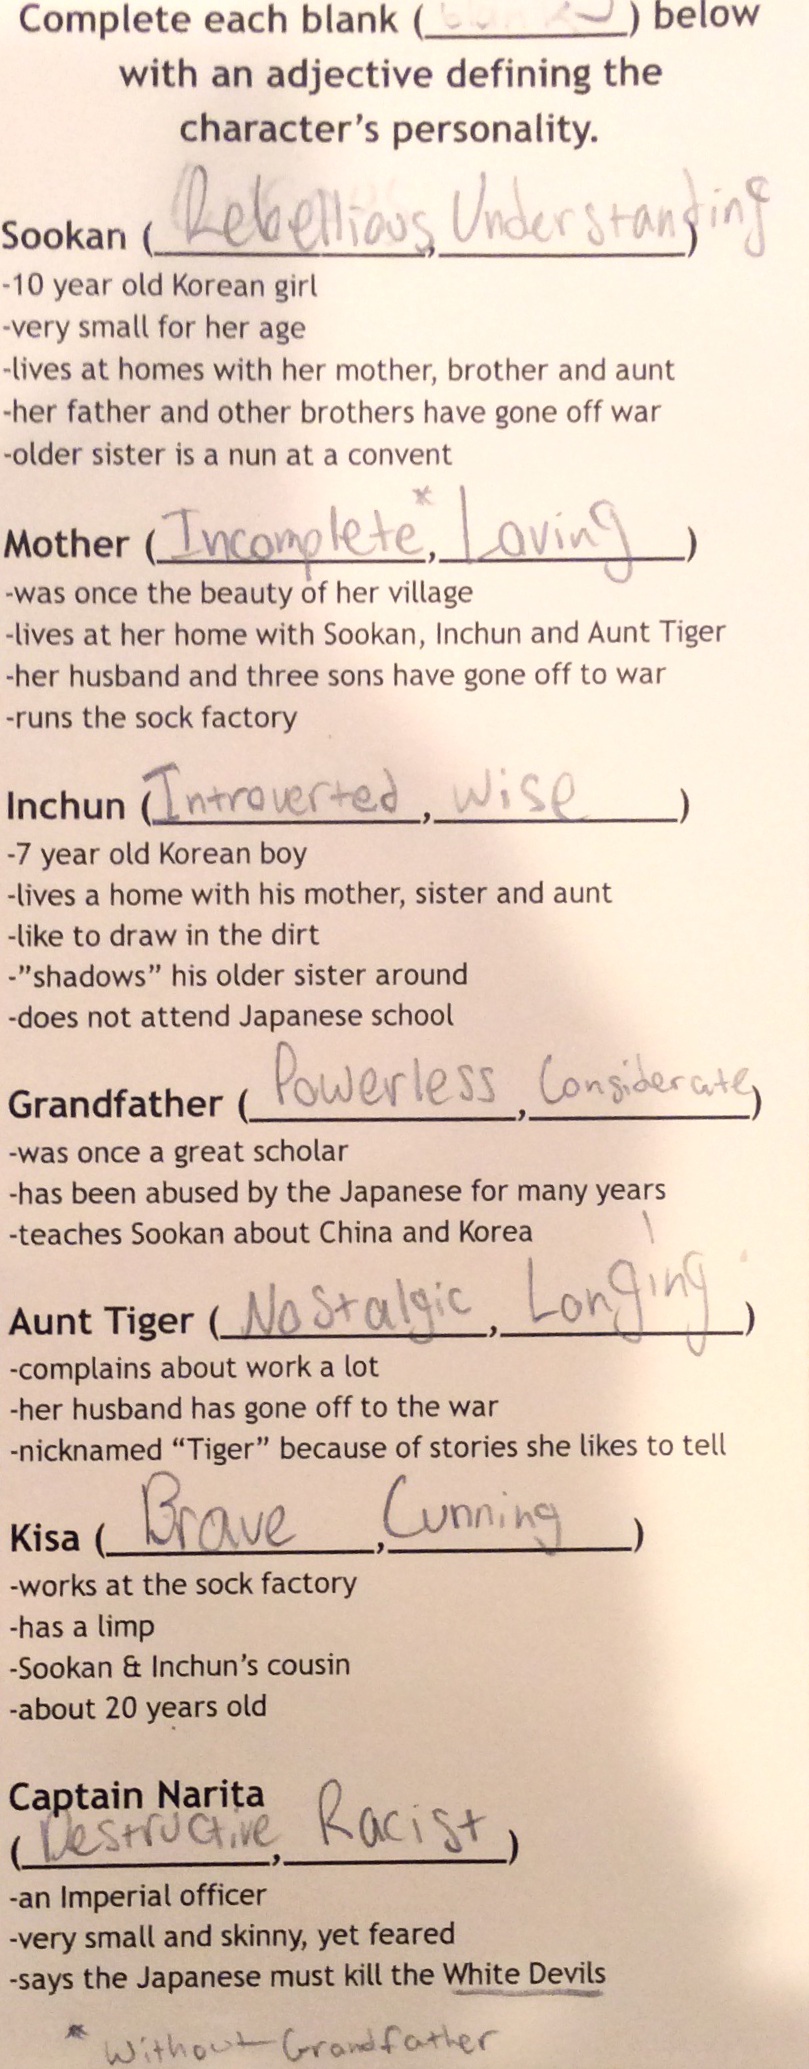 Complete each blank (__________) below
with an adjective defining the
character's personality.
Sookan (Rebellious, Understanding)
-10 year old Korean girl
-very small for her age
-lives at homes with her mother, brother and aunt
-her father and other brothers have gone off war
-older sister is a nun at a convent
Mother (Incomplete*, Loving)
-was once the beauty of her village
-lives at her home with Sookan, Inchun and Aunt Tiger
-her husband and three sons have gone off to war
-runs the sock factory
Inchun (Introverted, wise)
-7 year old Korean boy
-lives a home with his mother, sister and aunt
-like to draw in the dirt
-"shadows" his older sister around
-does not attend Japanese school
Grandfather (Powerless, Considerate)
-was once a great scholar
-has been abused by the Japanese for many years
-teaches Sookan about China and Korea
Aunt Tiger (Nostalgic, Longing)
-complains about work a lot
-her husband has gone off to the war
-nicknamed "Tiger" because of stories she likes to tell
Kisa (Brave, Cunning)
-works at the sock factory
-has a limp
-Sookan & Inchun's cousin
-about 20 years old
Captain Narita
(Destructive, Racist)
-an Imperial officer
-very small and skinny, yet feared
-says the Japanese must kill the White Devils
* Without Grandfather